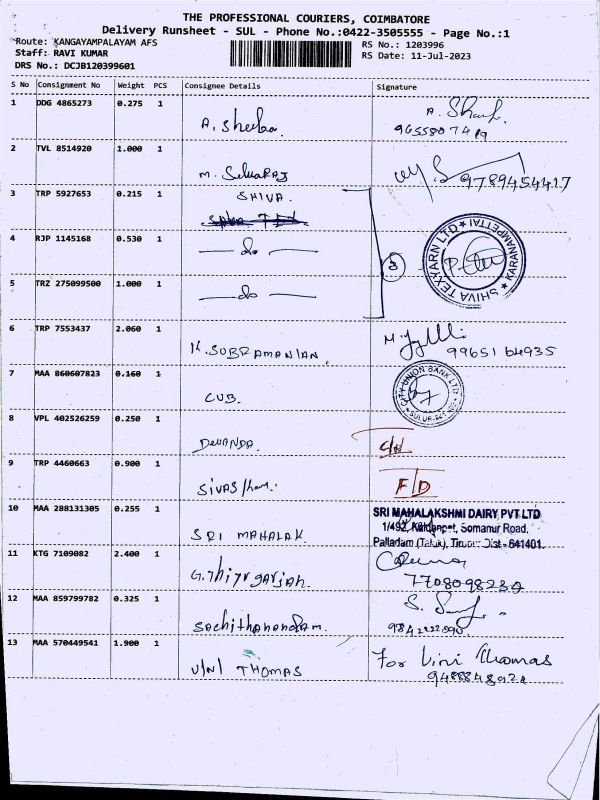 THE PROFESSIONAL COURIERS, COIMBATORE
Delivery Runsheet - SUL - Phone No.:0422-3505555 - Page No.:1
Route: KANGAYAMPALAYAM AFS
Staff: RAVI KUMAR
DRS No.: DCJB120399601
RS No.: 1203996
RS Date: 11-Jul-2023
S No Consignment No Weight PCS Consignee Details Signature
1 DDG 4865273 0.275 1 A. Sheeba.
9655807419
2 TVL 8514920 1.000 1 M. Selvaraj 9789454417
3 TRP 5927653 0.215 1 SHIVA
4 RJP 1145168 0.530 1 — do —
3
SHIVA TEXYARN LTD ★ KARANAMPETTAI ★
5 TRZ 275099500 1.000 1 — do —
6 TRP 7553437 2.060 1 K. SUBRAMANIAN. 9965164935
7 MAA 860607823 0.160 1 CUB.
CITY UNION BANK LTD
SULUR
8 VPL 402526259 0.250 1 Devanda. C/N
9 TRP 4460663 0.900 1 F/D
10 MAA 288131305 0.255 1 SRI MAHALAK
SRI MAHALAKSHMI DAIRY PVT LTD
1/492, Somanur Road,
Palladam (Taluk), Tirupur Dist - 641401.
11 KTG 7109082 2.400 1 G. Thiyagarajan.
12 MAA 859799782 0.325 1 Sachithanandam.
13 MAA 570449541 1.900 1 VINI THOMAS For Vini Thomas